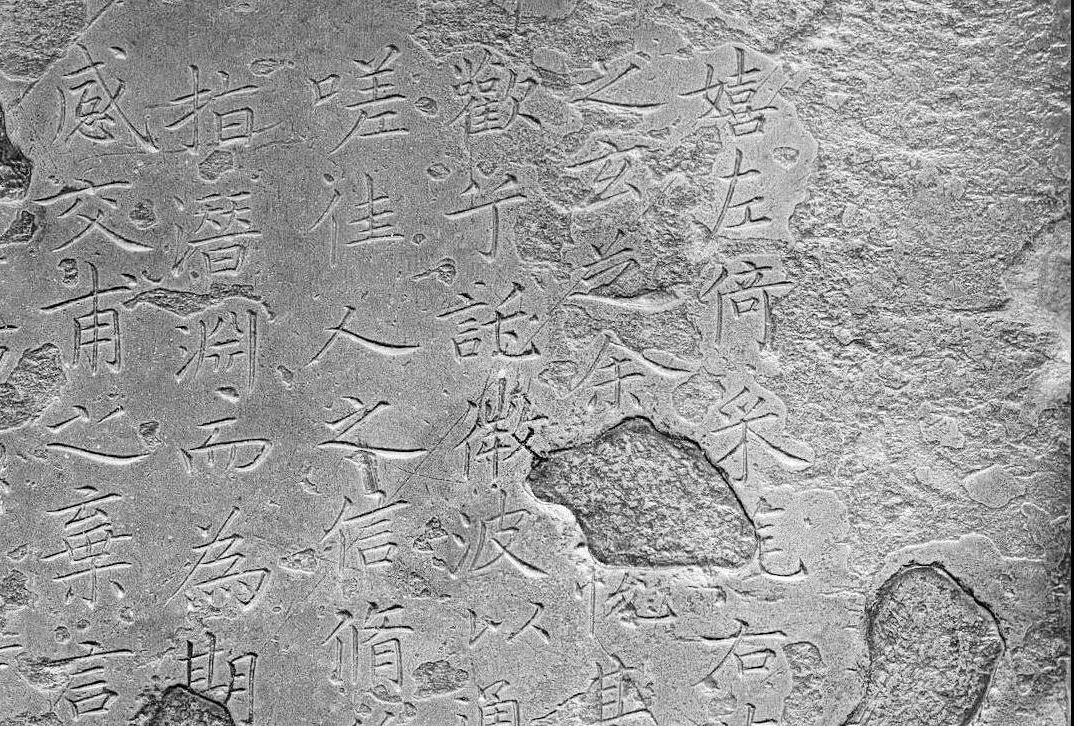 嬉左倚采旄右
之玄芝余情悅其
歡兮託微波以通
嗟佳人之信脩
指潛淵而為期
感交甫之棄言